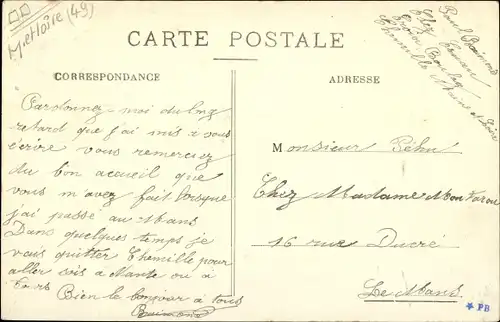 M. et Loire (49)
CARTE POSTALE
CORRESPONDANCE
ADRESSE
Pardonnez-moi du long
retard que j'ai mis a vous
écrire vous remerciez
du bon accueil que
vous m'avez fait lorsque
j'ai passé au Mans
Dans quelques temps je
vais quitter Chemille pour
aller sois a Nante ou à
Tours
Bien le bonjour à tous
Raimond
Chez
Chemille Maine et Loire
Monsieur Péhu
Chez Madame
16 rue Ducré
Le Mans
PB